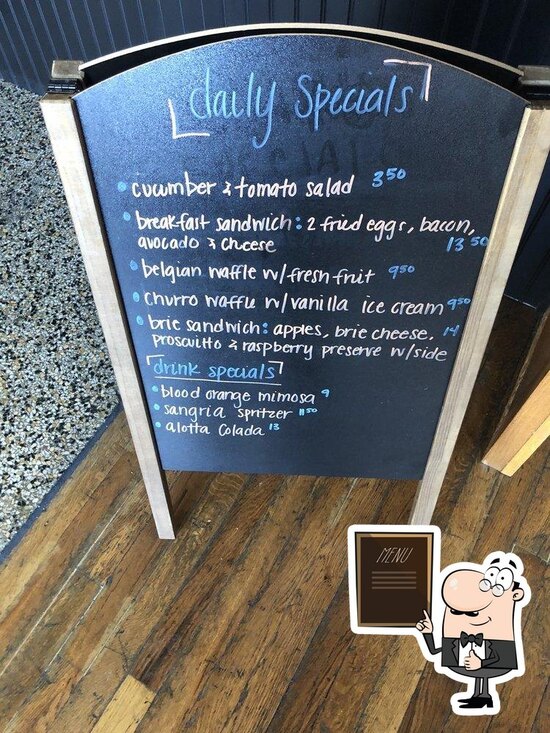 daily Specials
cucumber & tomato salad 3⁵⁰
breakfast sandwich: 2 fried eggs, bacon,
avocado & cheese 13⁵⁰
belgian waffle w/fresh fruit 9⁵⁰
churro waffle w/vanilla ice cream 9⁵⁰
brie sandwich: apples, brie cheese, 14
proscuitto & raspberry preserve w/side
drink specials
blood orange mimosa 9
sangria spritzer 11⁵⁰
alotta colada 13
MENU